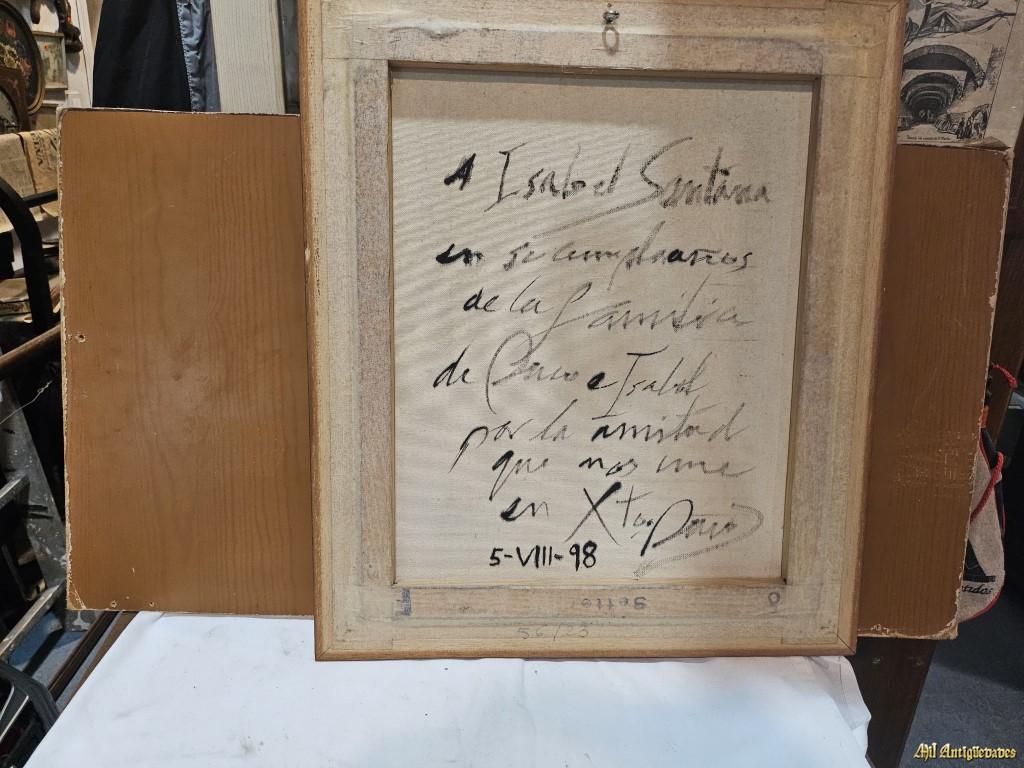 A Isabel Santana
en su cumpleaños
de la familia
de Paco e Isabel
por la amistad
que nos une
en Xto. Paco
5-VIII-98
56/23
Mil Antigüedades